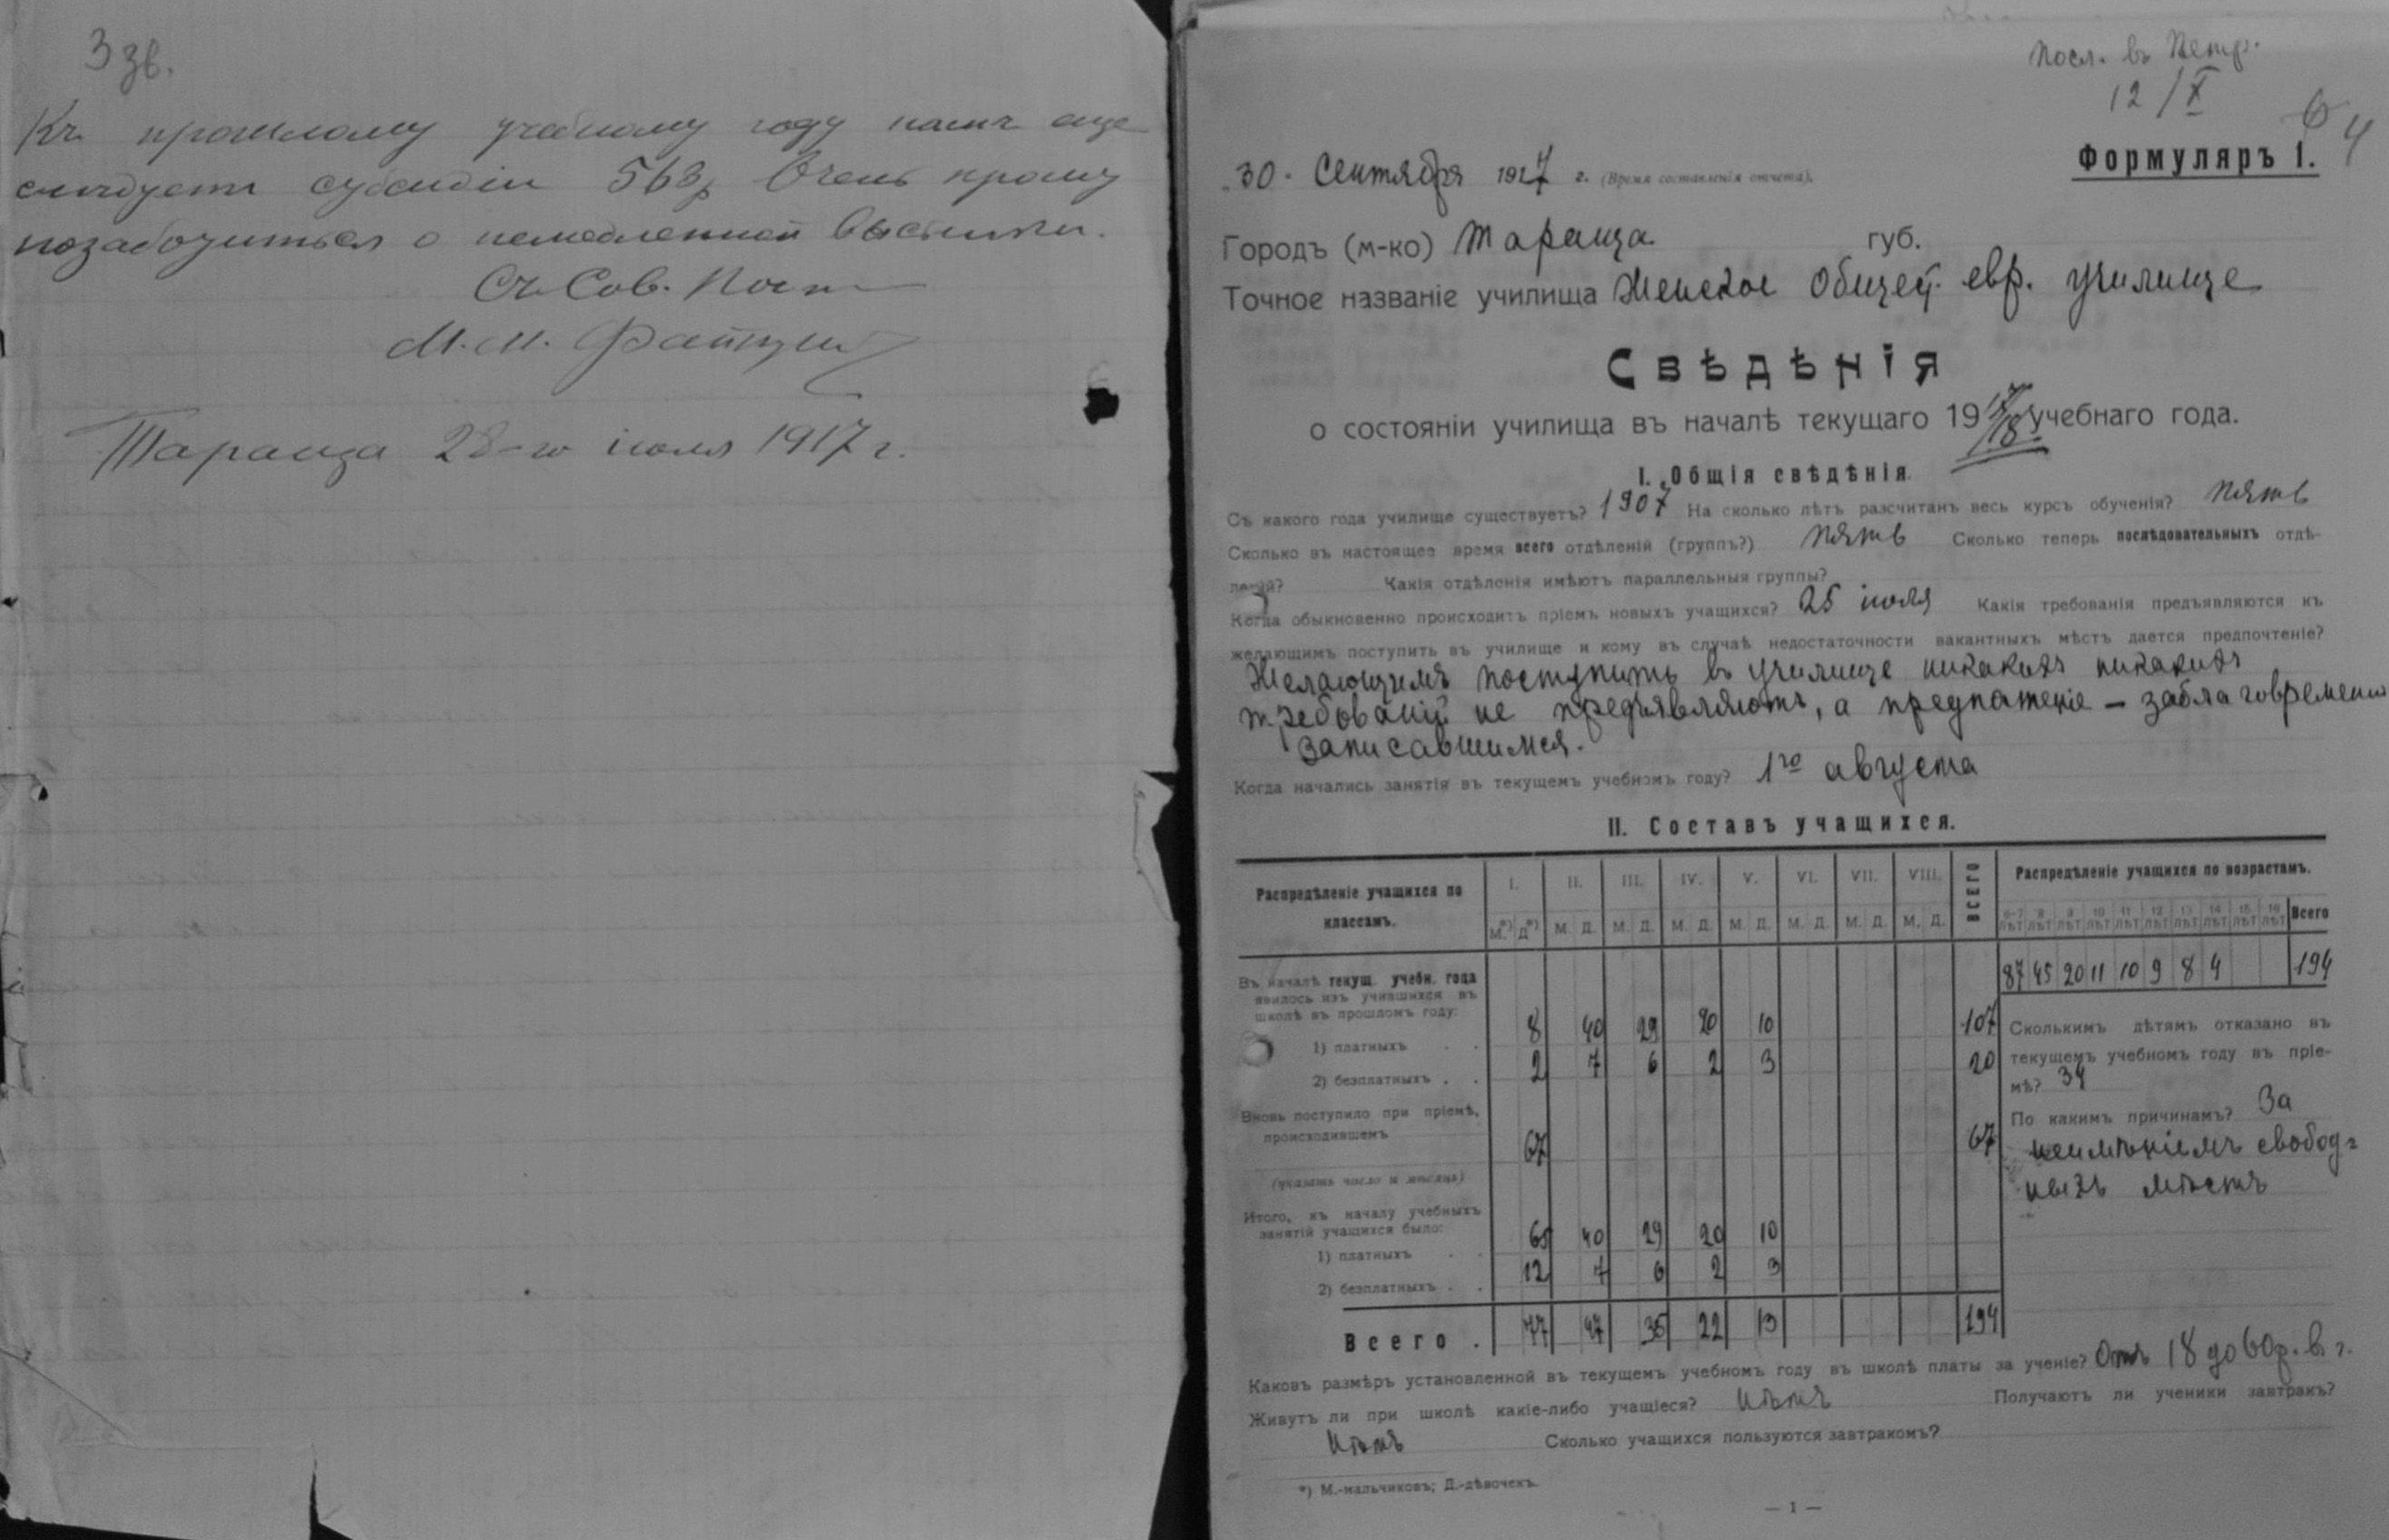 3 зв.
Къ прошлому учебному году намъ еще
слѣдуетъ субсидіи 563р Очень прошу
позаботиться о немедленной высылки.
Съ Сов. Почт
М. М.
Тараща 28-го іюля 1917 г.
Посл. въ Петр.
12/X
6 4
Формуляръ 1.
„30" Сентября 1917 г. (Время составленія отчета).
Городъ (м-ко) Тараща губ.
Точное названіе училища Женское Общест. евр. училище
Свѣдѣнія
о состояніи училища въ началѣ текущаго 1917/18 учебнаго года.
I. Общія свѣдѣнія.
Съ какого года училище существуетъ? 1907 На сколько лѣтъ разсчитанъ весь курсъ обученія? пять
Сколько въ настоящее время всего отдѣленій (группъ?) пять Сколько теперь послѣдовательныхъ отдѣ-
леній? Какія отдѣленія имѣютъ параллельныя группы?
Когда обыкновенно происходитъ пріемъ новыхъ учащихся? 25 іюля Какія требованія предъявляются къ
желающимъ поступить въ училище и кому въ случаѣ недостаточности вакантныхъ мѣстъ дается предпочтеніе?
Желающимъ поступить въ училище никакихъ никакихъ
требованій не предъявляютъ, а предпатеніе – заблаговременно
записавшимся.
Когда начались занятія въ текущемъ учебномъ году? 1го августа
II. Составъ учащихся.
Распредѣленіе учащихся по классамъ. I. II. III. IV. V. VI. VII. VIII. ВСЕГО Распредѣленіе учащихся по возрастамъ.
М.*) Д*) М. Д. М. Д. М. Д. М. Д. М. Д. М. Д. М. Д. 6-7 лѣт 8 лѣт 9 лѣт 10 лѣт 11 лѣт 12 лѣт 13 лѣт 14 лѣт 15 лѣт 16 лѣт Всего
87 45 20 11 10 9 8 4 194
Въ началѣ текущ. учебн. года
явилось изъ учившихся въ
школѣ въ прошломъ году:
1) платныхъ . . 8 40 29 20 10 107
2) безплатныхъ . . 2 7 6 2 3 20
Вновь поступило при пріемѣ,
происходившемъ 67 67
(указать число и мѣсяцъ)
Итого, къ началу учебныхъ
занятій учащихся было:
1) платныхъ . . 65 40 29 20 10
2) безплатныхъ . . 12 7 6 2 3
Всего . 77 47 35 22 13 194
Сколькимъ дѣтямъ отказано въ
текущемъ учебномъ году въ пріе-
мѣ? 34
По какимъ причинамъ? За
неимѣніемъ свобод-
ныхъ мѣстъ
Каковъ размѣръ установленной въ текущемъ учебномъ году въ школѣ платы за ученіе? Отъ 18 до 60р. в г.
Живутъ ли при школѣ какіе-либо учащіеся? Нѣтъ Получаютъ ли ученики завтракъ?
Нѣтъ Сколько учащихся пользуются завтракомъ?
*) М.-мальчиковъ; Д.-дѣвочекъ.
— 1 —